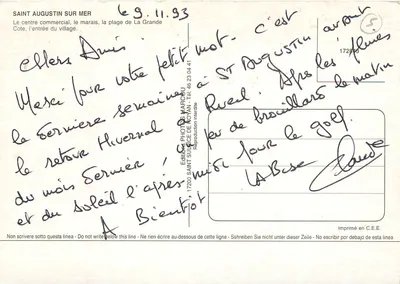 SAINT AUGUSTIN SUR MER
Le centre commercial, le marais, la plage de La Grande
Cote, l'entrée du village.
Le 9.11.93
Chers Amis.
Merci pour votre petit mot. C'est avant
la dernière semaine à ST Augustin avant
le retour Hivernal à Rueil. Après les pluies
du mois dernier, un peu de brouillard le matin
et du soleil l'après midi pour le golf.
A Bientôt
La Bise
Claude
5
172
17200 SAINT SULPICE DE ROYAN - Tél. 46 23 04 41
Reproduction interdite
imprimé en C.E.E.
Non scrivere sotto questa linea - Do not write below this line - Ne rien écrire au-dessous de cette ligne - Schreiben Sie nicht unter dieser Zeile - No escribir por debajo de esta linea